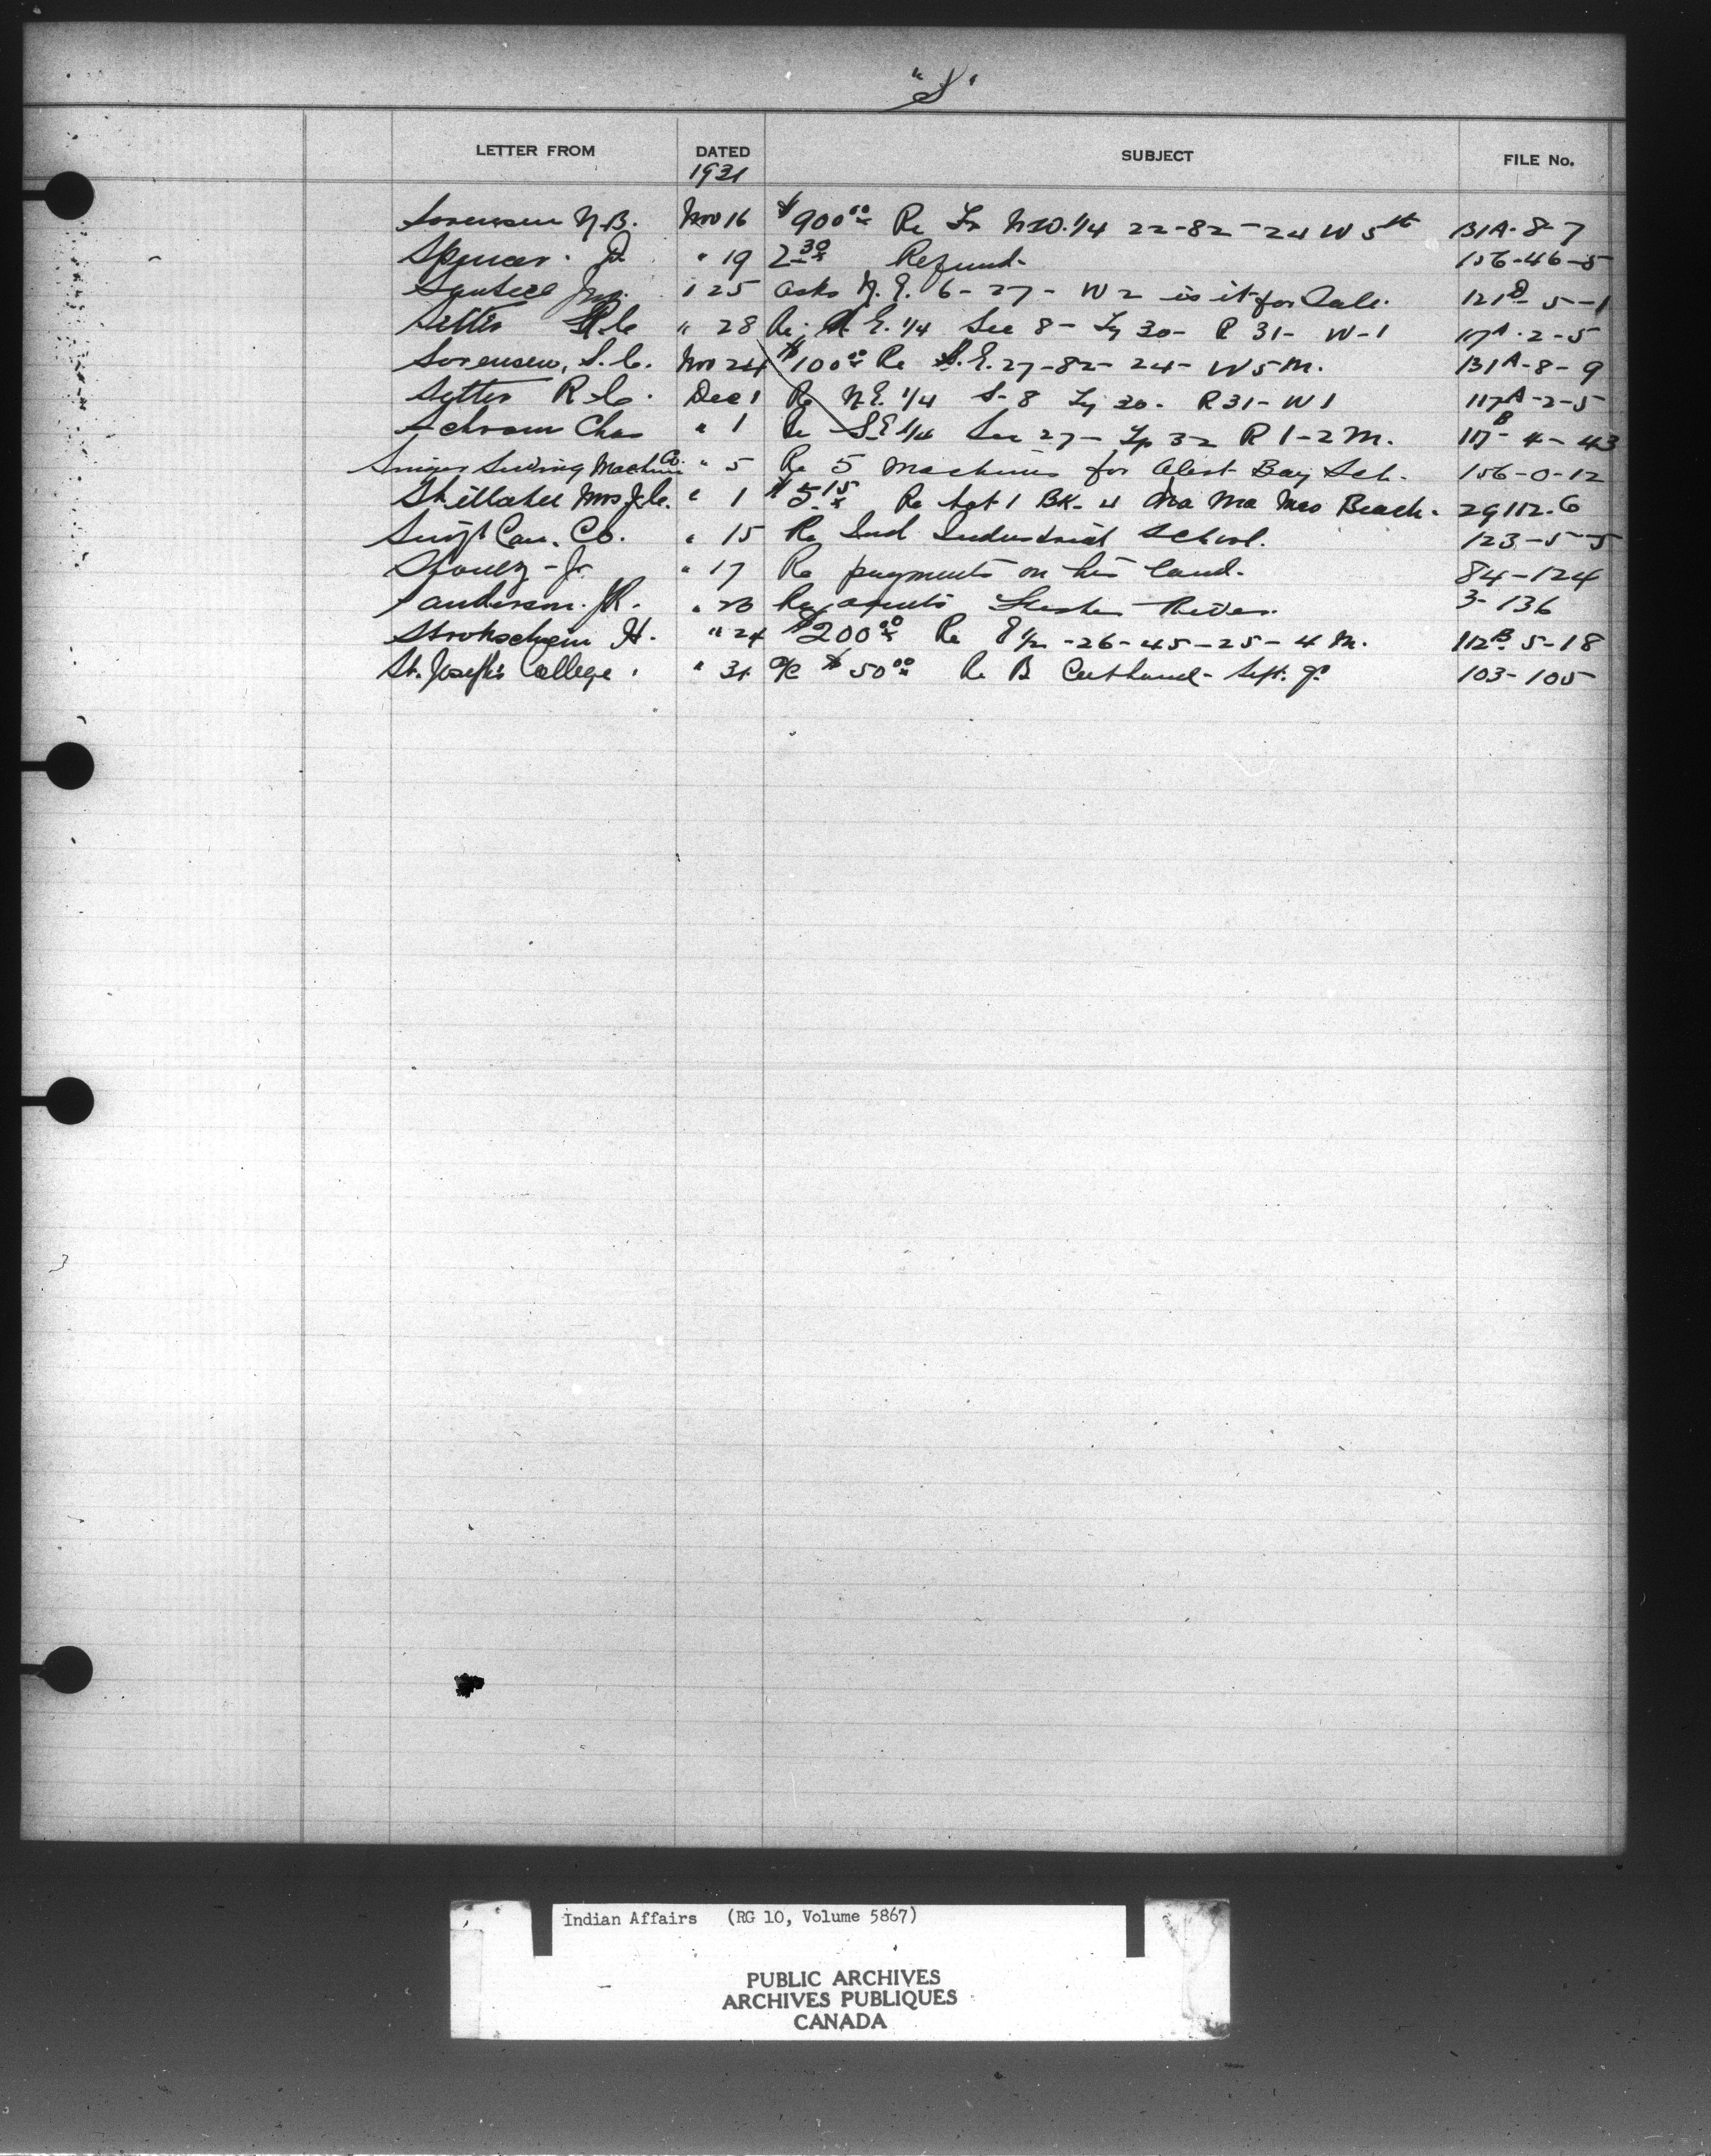 "S"
LETTER FROM DATED SUBJECT FILE No.
1931
Sorensen N.B. Nov 16 $900.00 Re Fr N.W. 1/4 22-82-24 W 5th 131A-8-7
Spencer. J. " 19 2.30 Refund. 156-46-5
" 25 asks N.E. 6-27-W2 is it for Sale. 121D-5-1
Setter R.C. " 28 Re. N.E. 1/4 Sec 8- Tp 30- R 31- W-1 117A-2-5
Sorensen, S.C. Nov 24 $100.00 Re S.E. 27-82-24-W5M. 131A-8-9
Setter R.C. Dec 1 Re N.E. 1/4 S-8 Tp 30- R31-W1 117A-2-5
Schram Chas " 1 Re S.E 1/4 Sec 27- Tp 32 R 1-2 M. 117B-4-43
Singer Sewing Machine Co. " 5 Re 5 Machines for Alert Bay Sch. 156-0-12
Mrs J.C. " 1 $5.15 Re Lot 1 BK-4 Ma Ma Beach. 29112.6
Swift Can. Co. " 15 Re Ind Industrial School. 123-5-5
" 17 Re payments on his land. 84-124
Sanderson. J.R. " 23 Re River. 3-136
Strohschein H. " 24 $200.00 Re E 1/2-26-45-25-4 M. 112B.5-18
St. Joseph's College. " 31 a/c $50.00 Re B Sept. qr. 103-105
Indian Affairs (RG 10, Volume 5867)
PUBLIC ARCHIVES
ARCHIVES PUBLIQUES
CANADA